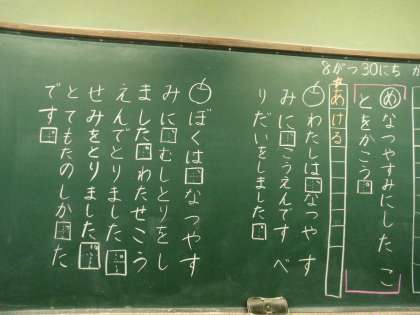 8がつ30にち
めなつやすみにしたこ
とをかこう
あける
わたしはなつやす
みにこうえんですべ
りだいをしました
ぼくはなつやす
みにむしとりをし
ましたわたせこう
えんでとりました
せみをとりました
とてもたのしかた
です